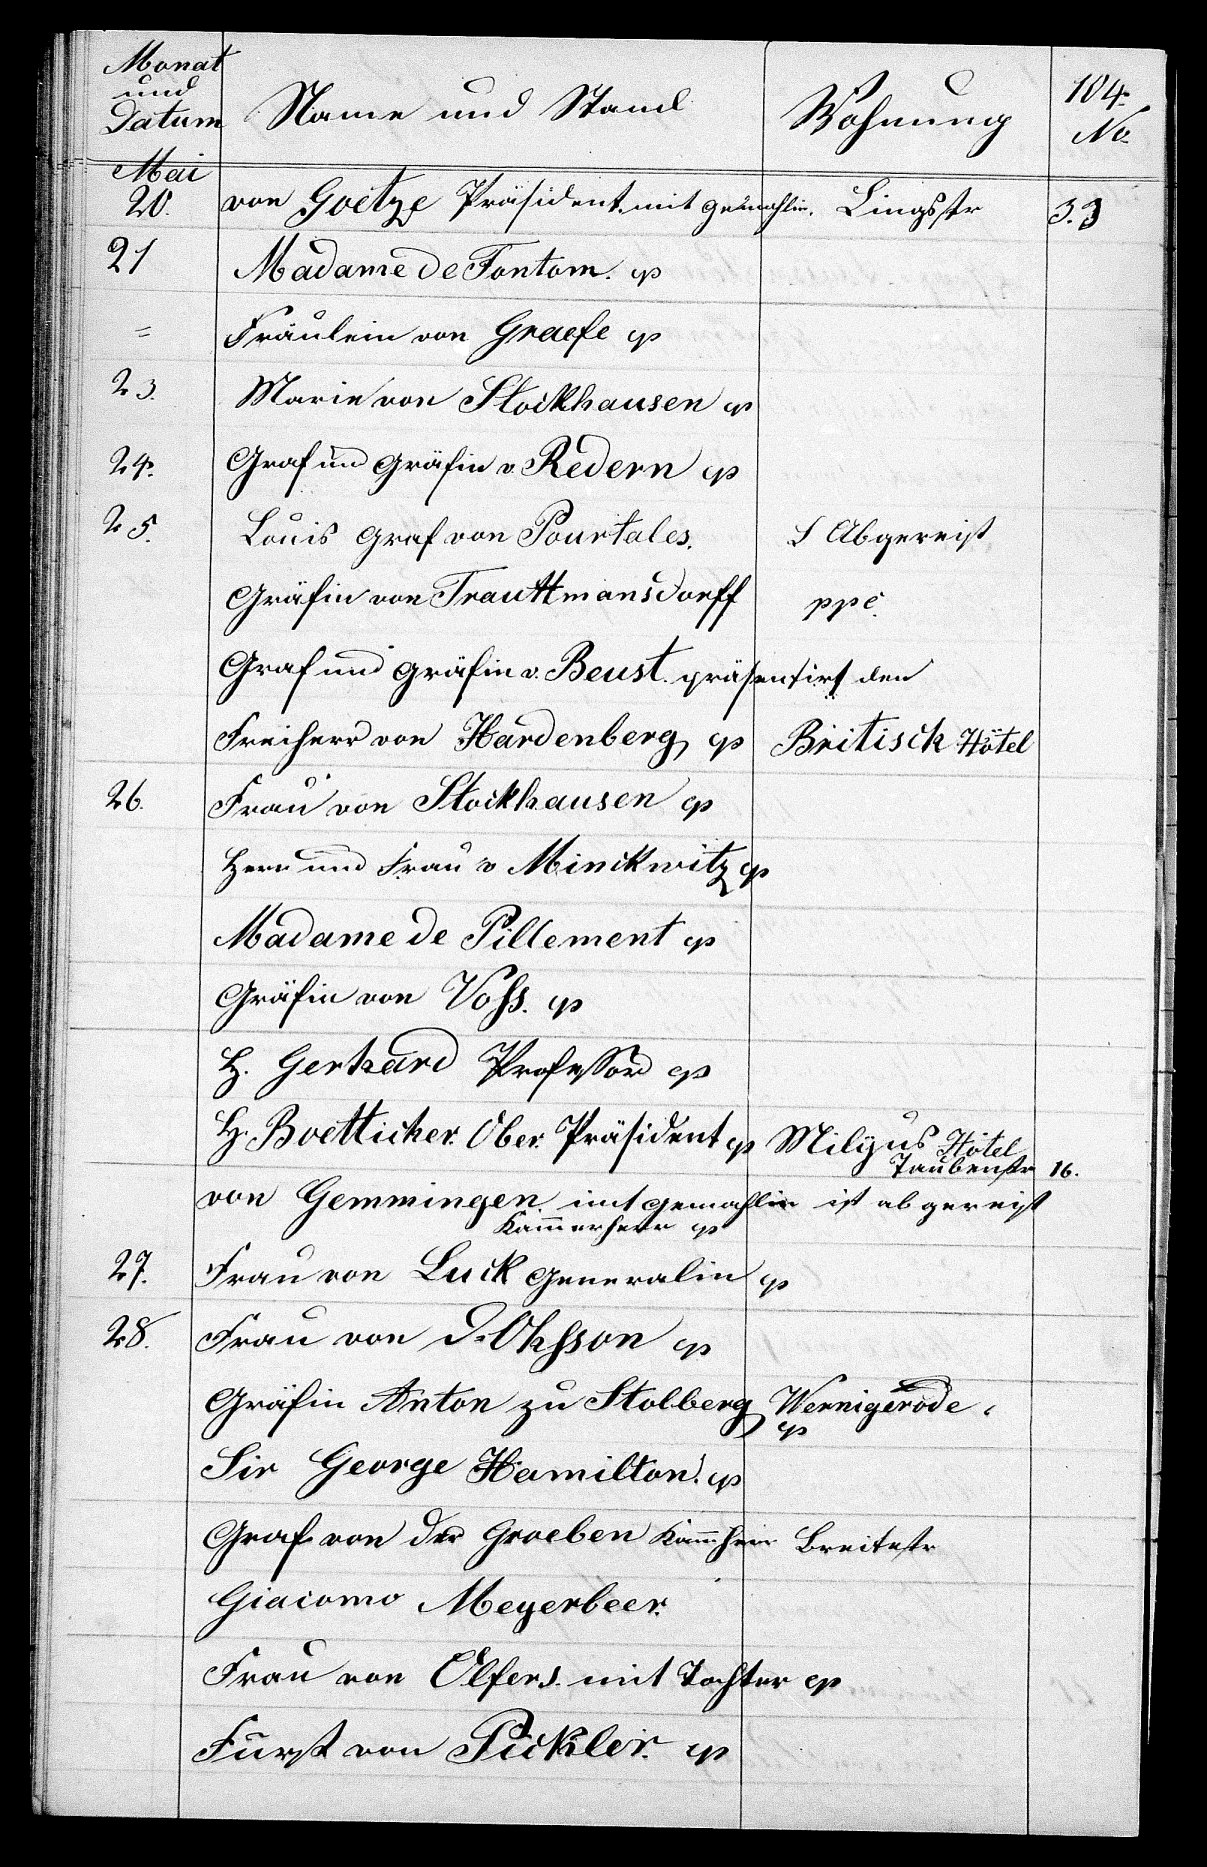 Monat und Datum Name und Stand Wohnung 104. No
Mai
20. von Goetze Präsident mit Gemahlin. Lingsstr 3.3
21 Madame de Fontom. cp
= Fräulein von Graefe cp
23. Marie von Stockhausen cp
24. Graf und Gräfin v. Redern cp
25. Louis Graf von Pourtales. Abgereist
Gräfin von Trauttmansdorff ppc.
Graf und Gräfin v. Beust. präsentirt den
Freiherr von Hardenberg cp Britisch Hôtel
26. Frau von Stockhausen cp
Herr und Frau v Minckwitz cp
Madame de Pillement cp
Gräfin von Voss. cp
H. Gerhard Professor cp
H. Boetticher. Ober Präsident cp Milijus Hôtel
Taubenstr 16.
von Gemmingen mit Gemahlin ist abgereist
Kammerherr cp
27. Frau von Luck Generalin cp
28. Frau von d'Ohsson cp
Gräfin Anton zu Stolberg Wernigerode.
cp
Sir George Hamilton. cp
Graf von der Groeben Kammherr Breitestr
Giacomo Meyerbeer.
Frau von Olfers. mit Tochter cp
Fürst von Pückler. cp